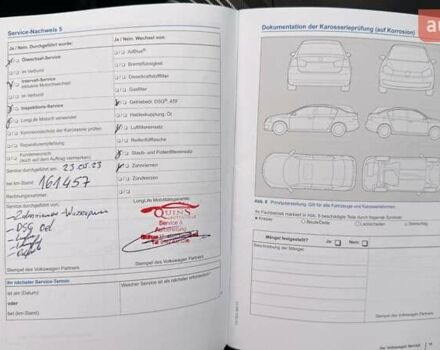 Service-Nachweis 5
Ja / Nein: Durchgeführt wurde:
Ölwechsel-Service
im Verbund
Intervall-Service
im Verbund
Inspektions-Service
LongLife Motoröl verwendet
Korrosionsschutz der Karosserie prüfen
Reparaturempfehlung
Service durchgeführt am: 23.05.23
bei km-Stand: 161457
Rechnungsnummer:
Service durchgeführt von:
DSG Oel
Stempel des Volkswagen Partners
Ihr nächster Service-Termin:
ist am (Datum):
oder
bei (km-Stand):
Ja / Nein: Wechsel von:
AdBlue®
Bremsflüssigkeit
Dieselkraftstofffilter
Gasfilter
Getriebeöl, DSG®, ATF
Haldexkupplung, Öl
Luftfiltereinsatz
Reifenfüllflasche
Staub- und Pollenfiltereinsatz
Zahnriemen
Zündkerzen
LongLife Mobilitätsgarantie
QUINS
Service &
Stempel des Volkswagen Partners
Welcher Service ist als nächster erforderlich?
Dokumentation der Karosserieprüfung (auf Korrosion)
Abb. 8 Prinzipdarstellung: Gilt für alle Fahrzeuge und Karosserieformen.
Ihr Fachbetrieb markiert in Abb. 8 beschädigte Teile durch folgende Symbole:
Kratzer Beule/Delle Lackschaden Steinschlag
Mängel festgestellt? Ja Nein
Beschreibung der Mängel:
Stempel des Volkswagen Partners
Der Volkswagen Service